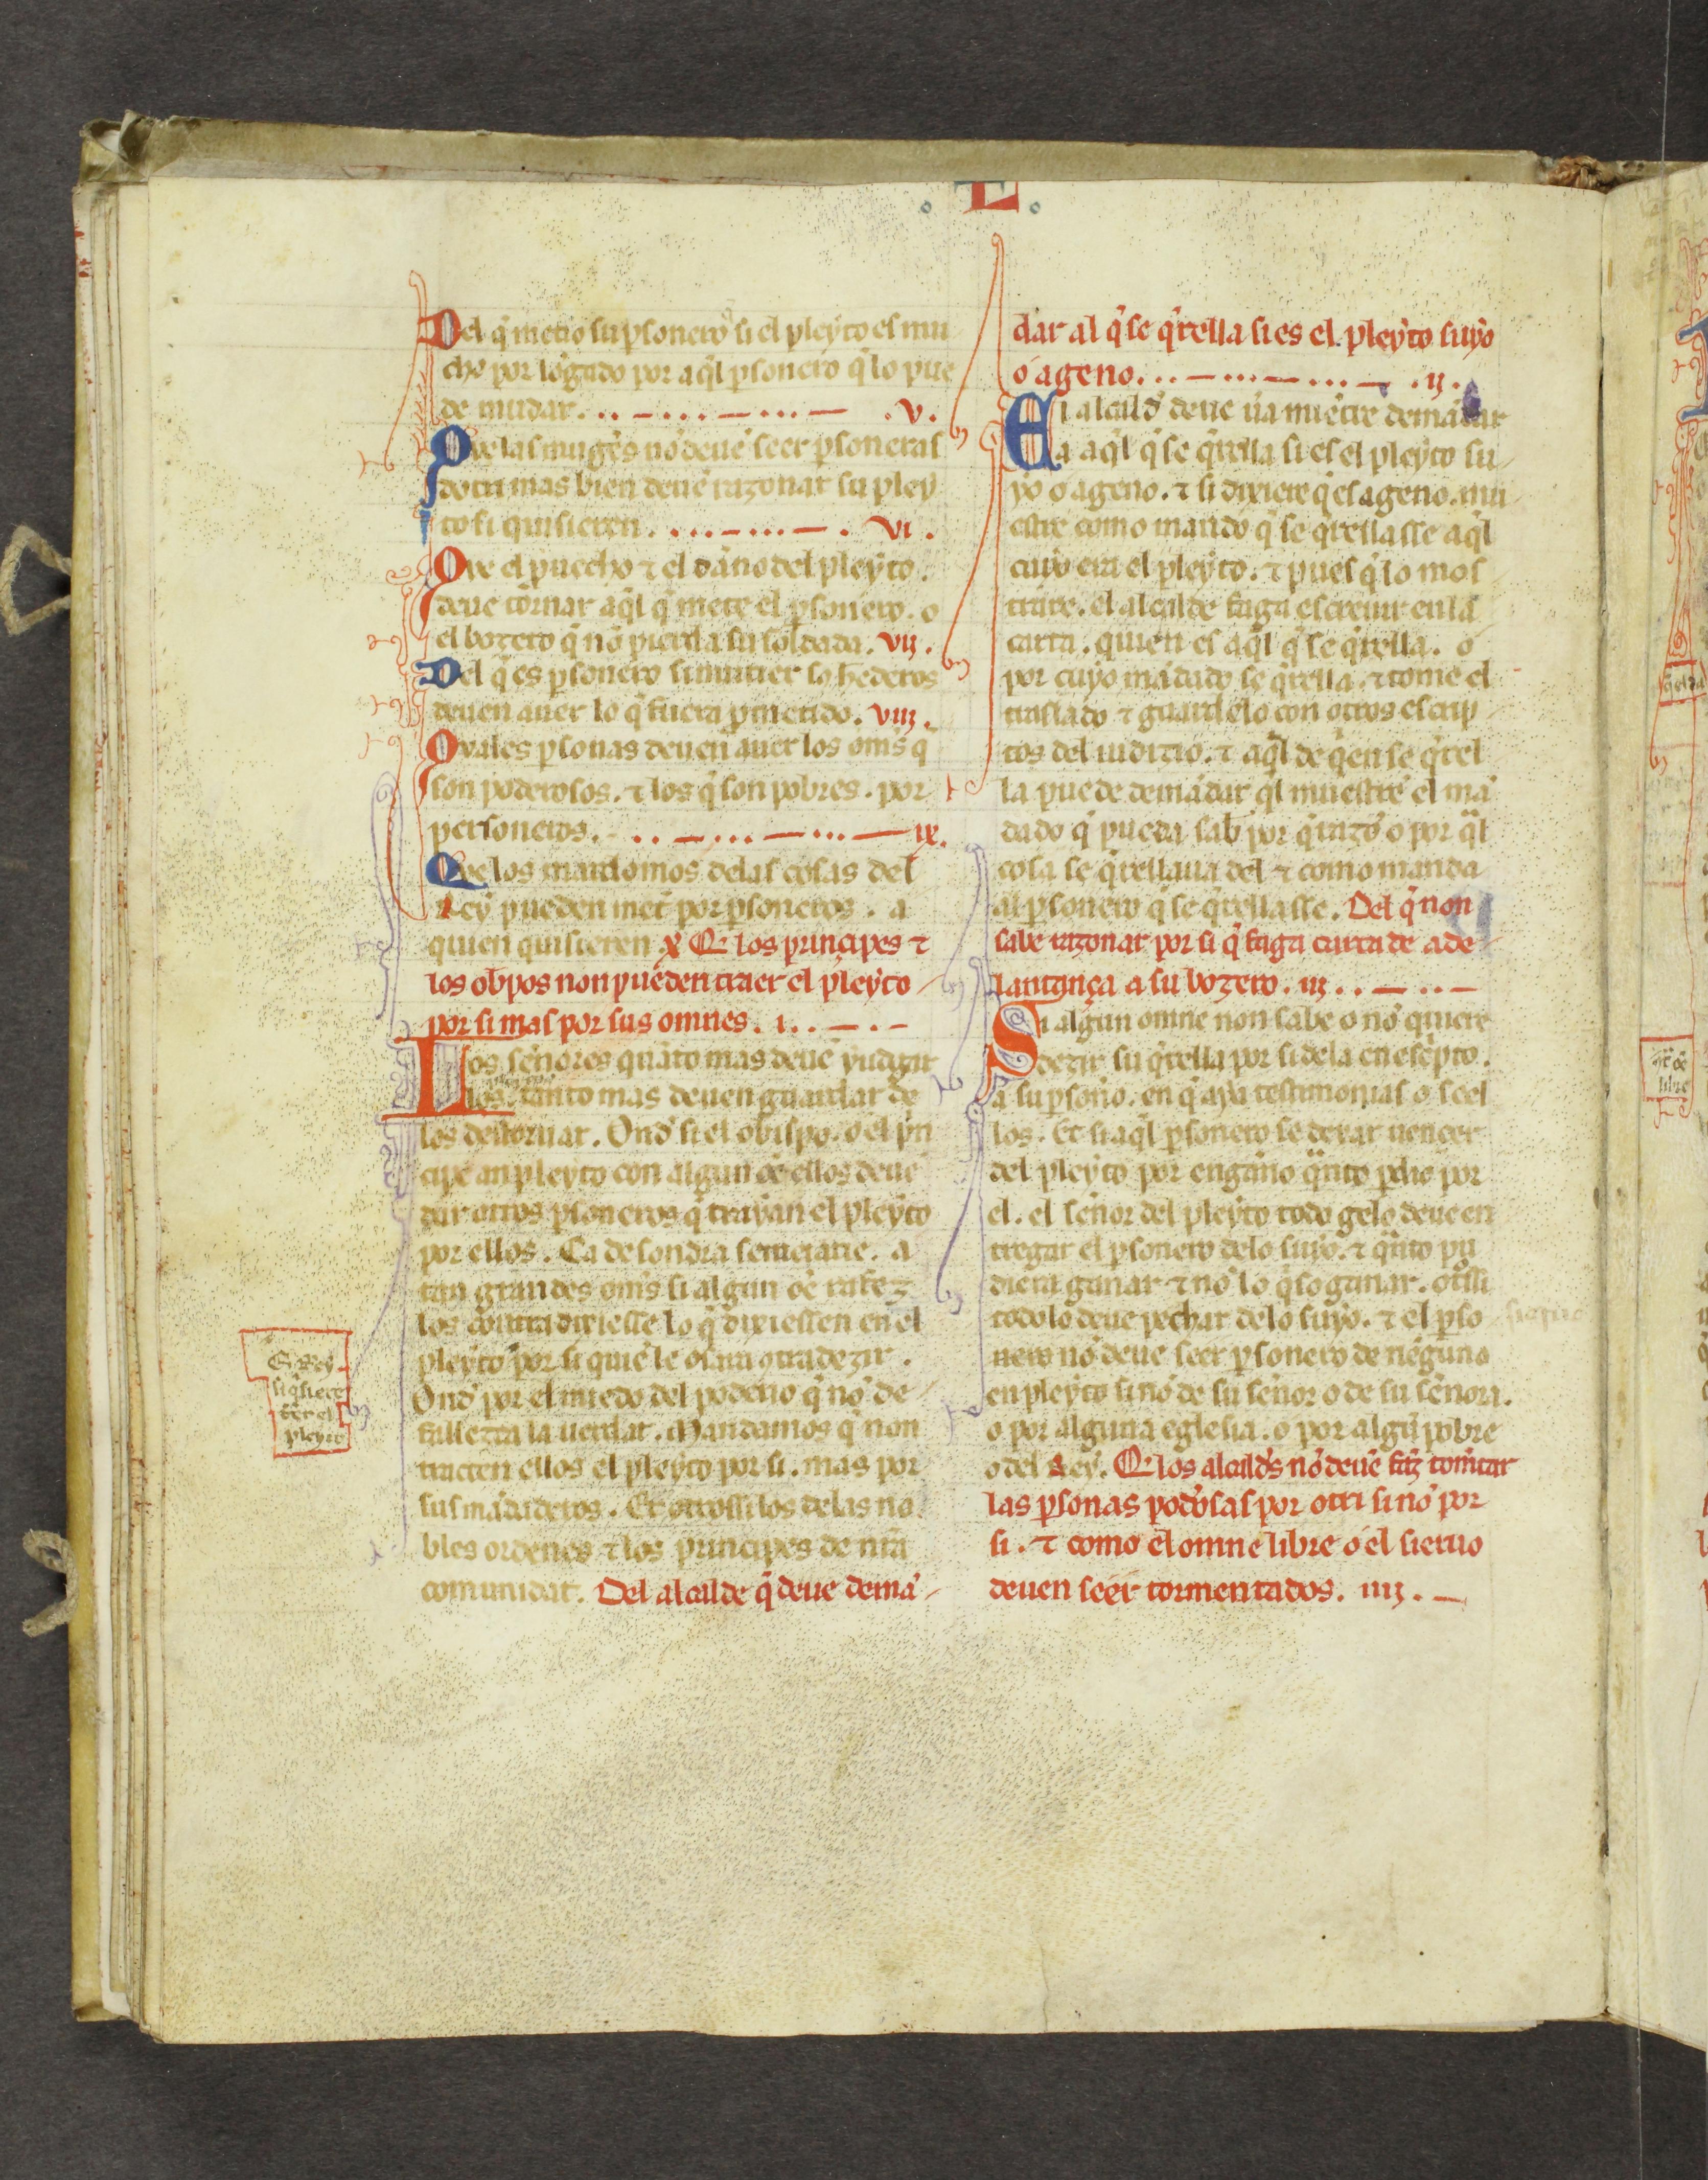 L
Del q̃ metio su p̱sonero si el pleyto es mu
cho por logado por aq̃l p̱sonero q̃ lo pue
de mudar. . . — . . . — . . . — .v.
Que las mugr̃s nõ deuẽ seer p̱soneras
dotri mas bien deuẽ razonar su pley
to si quisieren . . . . — . . . — . vi .
Que el p̱uecho ⁊ el dãno del pleyto.
deue tornar aq̃l q̃ mete el p̱sonero. o
el bozero q̃ nõ pierda su soldada. vij.
Del q̃ es p̱sonero si murier so hederos
deuen auer lo q̃ fuera p̱metido. viij.
Quales p̱sonas deuen auer los om̃s q̃
son poderosos. ⁊ los q̃ son pobres. por
personeros. . . — . . . — . . . — ix.
Que los maiordomos delas cosas del
Rey pueden met̃ por p̱soneros. a
quien quisieren x Q̃ los principes ⁊
los obp̃os non pueden traer el pleyto
por si mas por sus omnes. i. . . — . —
Los señores quãto mas deuẽ yudgar
los. tanto mas deuen guardar de
los destoruar. Ond̃ si el obispo. o el p̃n
cipe an pleyto con algun de ellos deuẽ
dar otros p̱soneros q̃ trayan el pleyto
por ellos. Ca desondra semeiarie. a
tan grandes om̃s si algun de rafez
los contradixiesse lo q̃ dixiessen en el
pleyto
Ond̃ por el miedo del poderio q̃ nõ de
fallezca la uerdat. Mandamos q̃ non
tracten ellos el pleyto por si. mas por
sus mãdaderos. Et otrossi los delas no
bles ordenes ⁊ los principes de nr̃a
comunidat. Del alcalde q̃ deue demã
El Rey
si q̃siere
tr̃er el
pleyto
dar al q̃ se q̃rella si es el pleyto suyo
o ageno. . . — . . . — . . . — . ij .
El alcald̃ deue ua miẽtre demãdar
a aq̃l q̃ se q̃rella si es el pleyto su
yo o ageno. ⁊ si dixiere q̃ es ageno. mu
estre como mando q̃ se q̃rellasse aq̃l
cuyo era el pleyto. ⁊ pues q̃ lo mos
trare. el alcalde faga escreuir en la
carta. quien es aq̃l q̃ se q̃rella. o
por cuyo mãdado se q̃rella. ⁊ tome el
traslado ⁊ guardelo con otros escrip
tos del iudizio. ⁊ aq̃l de q̃en se q̃rel
la puede demãdar q̃l muestre el mã
dado q̃ pueda sab̃ por q̃ razõ o por q̃l
cosa se q̃rellaua del ⁊ como manda
al p̱sonero q̃ se q̃rellasse. Del q̃ non
sabe razonar por si q̃ faga carta de ade
lantança a su bozero. iij . . — . . —
Si algun omne non sabe o nõ quiere
dezir su q̃rella por si dela en esc̃pto.
a su p̱soño. en q̃ aya testimonias o seel
los. Et si aq̃l p̱sonero se dexar uencer
del pleyto por engaño q̃nto p̱dio por
el. el señor del pleyto todo gelo deue en
tregar el p̱sonero delo suyo. ⁊ q̃nto pu
diera ganar ⁊ nõ lo q̃so ganar. otr̃ssi
todo lo deue pechar delo suyo. ⁊ el p̱so
nero nõ deue seer p̱sonero de neguno
en pleyto si nõ de su señor o de su señora.
o por alguna eglesia. o por algũ pobre
o del Rey. Q̃ los alcald̃s nõ deuẽ faz̃ tom̃tar
las p̱sonas pod̃osas por otri si nõ por
si. ⁊ como el omne libre o el sieruo
deuen seer tormentados. iiij. —